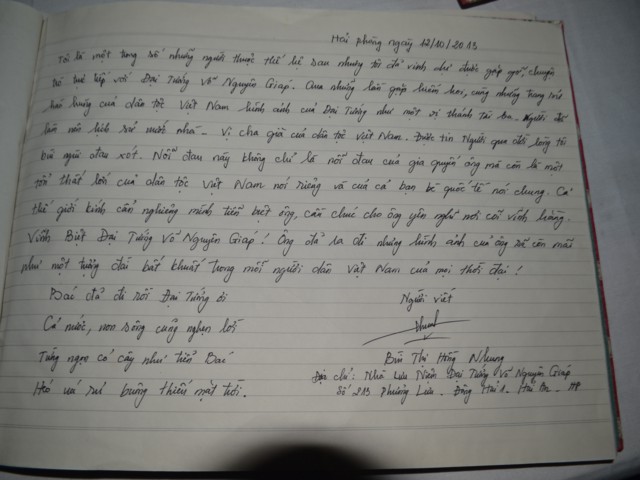 Hải phòng ngày 12/10/2013
Tôi là một trong số những người thuộc thế hệ sau nhưng tôi đã vinh dự được gặp gỡ, chuyện
trò trực tiếp với Đại Tướng Võ Nguyên Giáp. Qua những lần gặp hiếm hoi, cùng những trang sử
hào hùng của dân tộc Việt Nam hình ảnh của Đại Tướng như một vị thánh tài ba. Người đã
làm nên lịch sử nước nhà - Vị cha già của dân tộc Việt Nam. Được tin Người qua đời lòng tôi
bùi ngùi đau xót. Nỗi đau này không chỉ là nỗi đau của gia quyến ông mà còn là một
tổn thất lớn của dân tộc Việt Nam nói riêng và của cả bạn bè quốc tế nói chung. Cả
thế giới kính cẩn nghiêng mình tiễn biệt ông, cầu chúc cho ông yên nghỉ nơi cõi vĩnh hằng.
Vĩnh Biệt Đại Tướng Võ Nguyên Giáp! Ông đã ra đi nhưng hình ảnh của ông sẽ còn mãi
như một tượng đài bất khuất trong mỗi người dân Việt Nam của mọi thời đại!
Bác đã đi rồi Đại Tướng ơi
Cả nước, non sông cũng nghẹn lời
Từng ngọn cỏ cây như tiễn Bác
Héo và rũ buồng thiếu mặt trời.
Người viết
Bùi Thị Hồng Nhung
Địa chỉ: Nhà Lưu Niệm Đại Tướng Võ Nguyên Giáp
Số 213 Phường Lưu - Đông Hải 1 - Hải An - HP